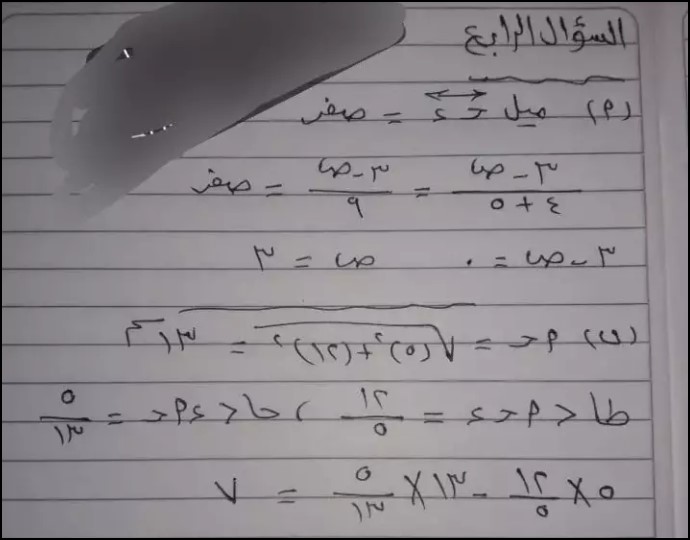 السؤال الرابع
(٩) ميل حـ ء = صفر
٣ - ص / ٤ + ٥ = ٣ - ص / ٩ = صفر
٣ - ص = ٠ ص = ٣
(ب) ٩حـ = √(٥)² + (١٢)² = ١٣ سم
طا < ٩حـ ء = ١٢ / ٥ ، حا < ء٩حـ = ٥ / ١٣
٥ × ١٢ / ٥ - ١٣ × ٥ / ١٣ = ٧